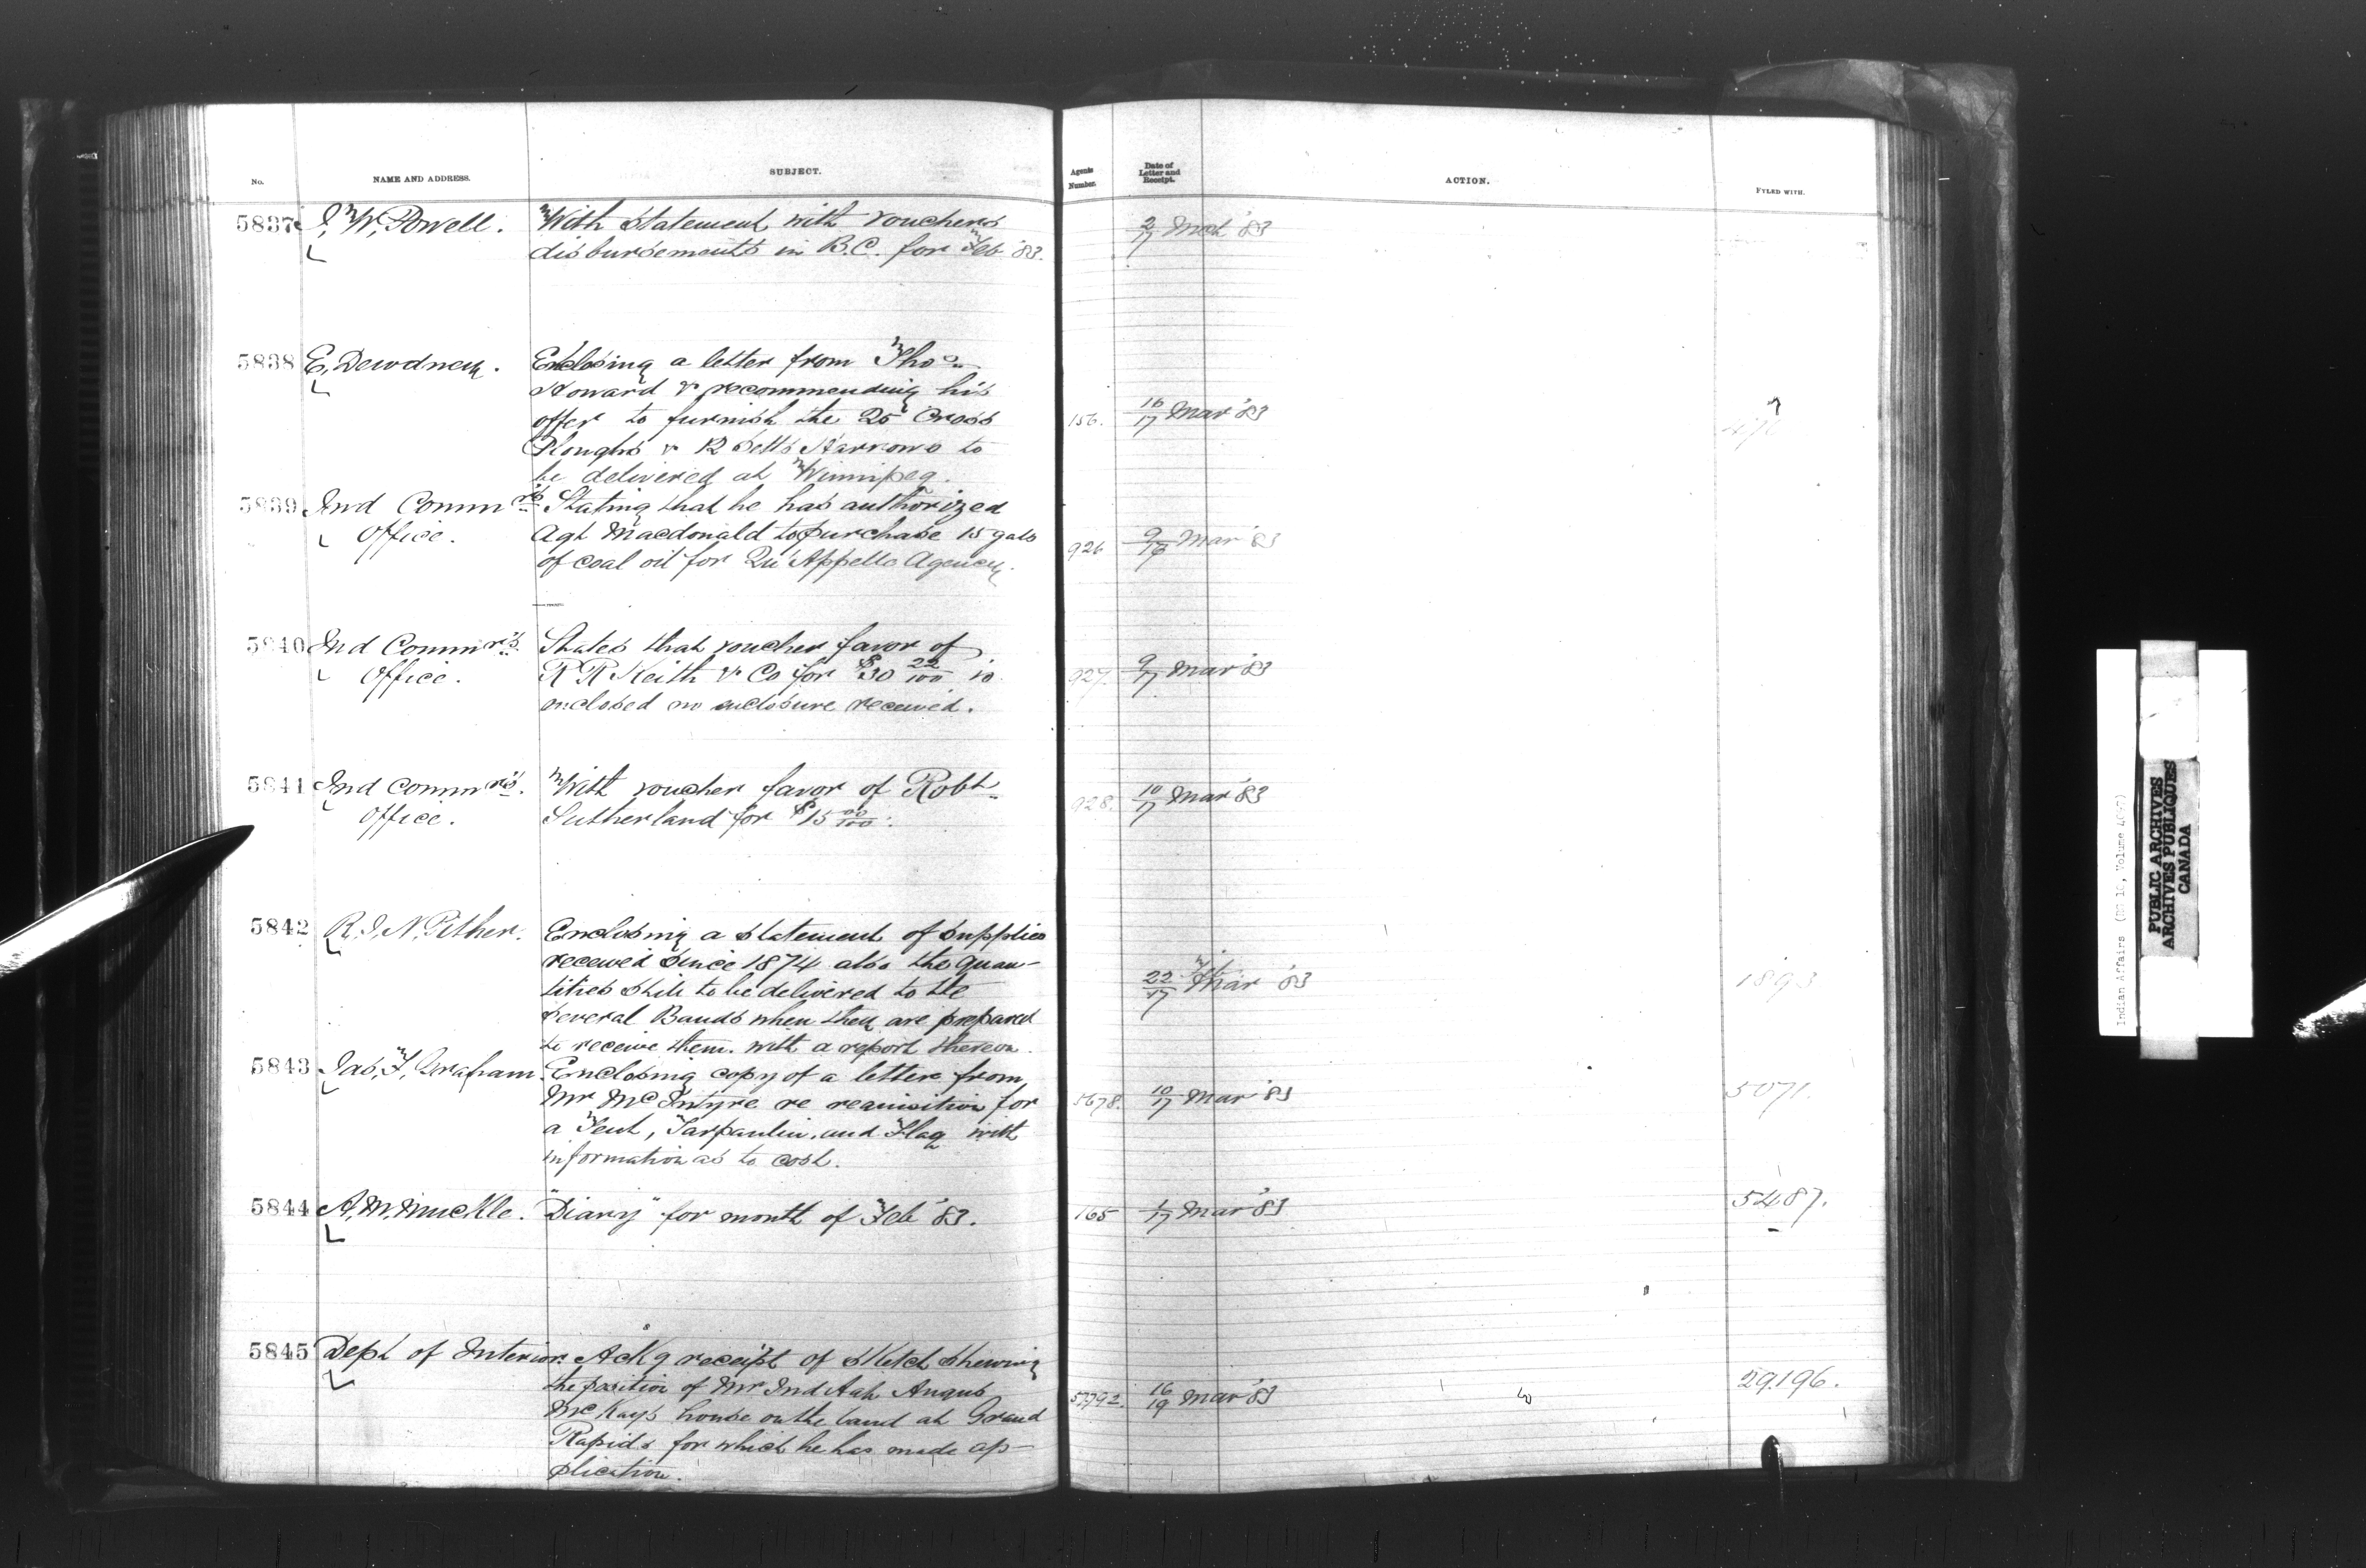 No. NAME AND ADDRESS. SUBJECT. Agents Number. Date of Letter and Receipt. ACTION. FYLED WITH.
5837 I. W. Powell. With statement with vouchers 2/17 Mch '83
disbursements in B.C. for Feb '83.
5838 E. Dewdney. Enclosing a letter from Thos
Howard & recommending his
offer to furnish the 25 Cross 156. 16/17 Mar '83
Ploughs & 12 Setts Harrows to
be delivered at Winnipeg.
5839 Ind Commrs Stating that he has authorized
Office. Agt Macdonald to purchase 15 gals 926 9/16 Mar '83
of coal oil for Qu'Appelle Agency.
5840 Ind Commrs States that voucher favor of
Office. R R Keith & Co for $30 22/100 is 927. 9/17 Mar '83
enclosed no enclosure received.
5841 Ind Commrs. With voucher favor of Robt 928. 10/17 Mar '83
Office. Sutherland for $15 00/100.
5842 R. J. N. Pither. Enclosing a statement of supplies
received since 1874 also the quan-
tities still to be delivered to the 22/17 Mar '83 1893
several Bands when they are prepared
to receive them. with a report thereon.
5843 Jas. F. Graham. Enclosing copy of a letter from
Mr McIntyre re requisition for 5678. 10/17 Mar '83 5071.
a Tent, Tarpaulin, and Flag with
information as to cost.
5844 A. M. Muckle. "Diary" for month of Feb '83. 165 1/17 Mar '83 5487.
5845 Dept of Interior. Ackg receipt of sketch shewing
the position of Mr Ind Agt Angus 57792. 16/19 Mar '83 29.196.
McKay's house on the land at Grand
Rapids for which he has made ap-
plication.
Indian Affairs (RG 10, Volume
PUBLIC ARCHIVES
ARCHIVES PUBLIQUES
CANADA